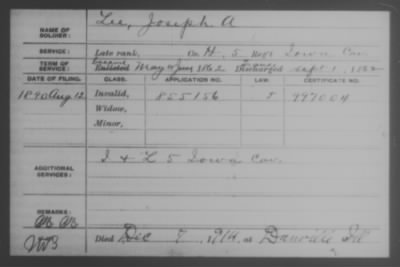 NAME OF SOLDIER: Lee, Joseph A
SERVICE: Late rank, Co. H, 5 Reg't Iowa Cav.
TERM OF SERVICE: Enlisted May 186 Discharged Sept 1, 186
DATE OF FILING. CLASS. APPLICATION NO. CERTIFICATE NO.
1890 Aug 12 Invalid, 855156 997004
Widow,
Minor,
ADDITIONAL SERVICES: I & L 5 Iowa Cav.
REMARKS:
Died Dec 7, 1914, at Danville Ill